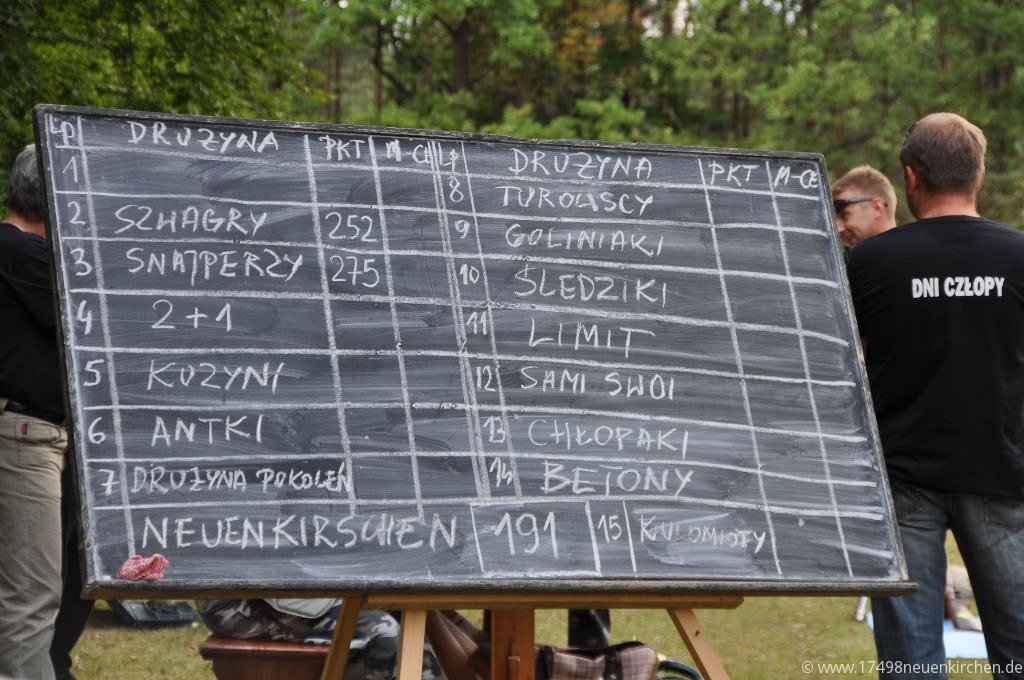 LP DRUŻYNA PKT M-CE LP DRUŻYNA PKT M-CE
1 8 TUROWSCY
2 SZWAGRY 252 9 GOLINIAKI
3 SNAJPERZY 275 10 ŚLEDZIKI
4 2+1 11 LIMIT
5 KUZYNI 12 SAMI SWOI
6 ANTKI 13 CHŁOPAKI
7 DRUŻYNA POKOLEŃ 14 BETONY
NEUENKIRSCHEN 191 15 KULOMIOTY
DNI CZŁOPY
© www.17498neuenkirchen.de